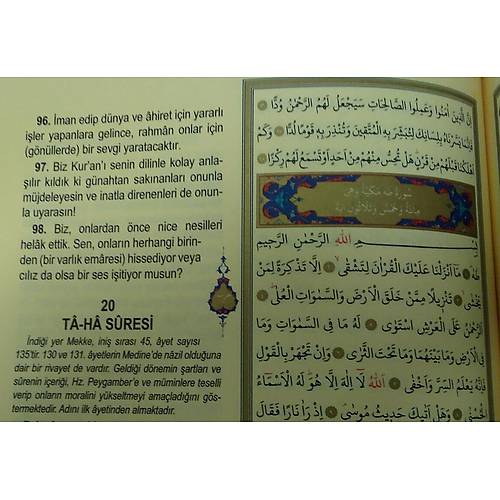 96. İman edip dünya ve âhiret için yararlı
işler yapanlara gelince, rahmân onlar için
(gönüllerde) bir sevgi yaratacaktır.
97. Biz Kur'an'ı senin dilinle kolay anla-
şılır kıldık ki günahtan sakınanları onunla
müjdeleyesin ve inatla direnenleri de onun-
la uyarasın!
98. Biz, onlardan önce nice nesilleri
helâk ettik. Sen, onların herhangi birin-
den (bir varlık emâresi) hissediyor veya
cılız da olsa bir ses işitiyor musun?
20
TÂ-HÂ SÛRESİ
İndiği yer Mekke, iniş sırası 45, âyet sayısı
135'tir. 130 ve 131. âyetlerin Medine'de nâzil olduğuna
dair bir rivayet de vardır. Geldiği dönemin şartları ve
sûrenin içeriği, Hz. Peygamber'e ve müminlere teselli
verip onların moralini yükseltmeyi amaçladığını gös-
termektedir. Adını ilk âyetinden almaktadır.
اِنَّ الَّذ۪ينَ اٰمَنُوا وَعَمِلُوا الصَّالِحَاتِ سَيَجْعَلُ لَهُمُ الرَّحْمٰنُ وُدًّا
فَاِنَّمَا يَسَّرْنَاهُ بِلِسَانِكَ لِتُبَشِّرَ بِهِ الْمُتَّق۪ينَ وَتُنْذِرَ بِه۪ قَوْمًا لُدًّا وَكَمْ
اَهْلَكْنَا قَبْلَهُمْ مِنْ قَرْنٍ هَلْ تُحِسُّ مِنْهُمْ مِنْ اَحَدٍ اَوْ تَسْمَعُ لَهُمْ رِكْزًا
سورة طه مكية وهى
مائة وخمس وثلاثون اية
بِسْمِ اللّٰهِ الرَّحْمٰنِ الرَّح۪يمِ
طٰهٰ مَٓا اَنْزَلْنَا عَلَيْكَ الْقُرْاٰنَ لِتَشْقٰى اِلَّا تَذْكِرَةً لِمَنْ
يَخْشٰى تَنْز۪يلًا مِمَّنْ خَلَقَ الْاَرْضَ وَالسَّمٰوَاتِ الْعُلٰى
اَلرَّحْمٰنُ عَلَى الْعَرْشِ اسْتَوٰى لَهُ مَا فِي السَّمٰوَاتِ وَمَا
فِي الْاَرْضِ وَمَا بَيْنَهُمَا وَمَا تَحْتَ الثَّرٰى وَاِنْ تَجْهَرْ بِالْقَوْلِ
فَاِنَّهُ يَعْلَمُ السِّرَّ وَاَخْفٰى اَللّٰهُ لَٓا اِلٰهَ اِلَّا هُوَ لَهُ الْاَسْمَٓاءُ
الْحُسْنٰى وَهَلْ اَتٰيكَ حَد۪يثُ مُوسٰى اِذْ رَاٰ نَارًا فَقَالَ